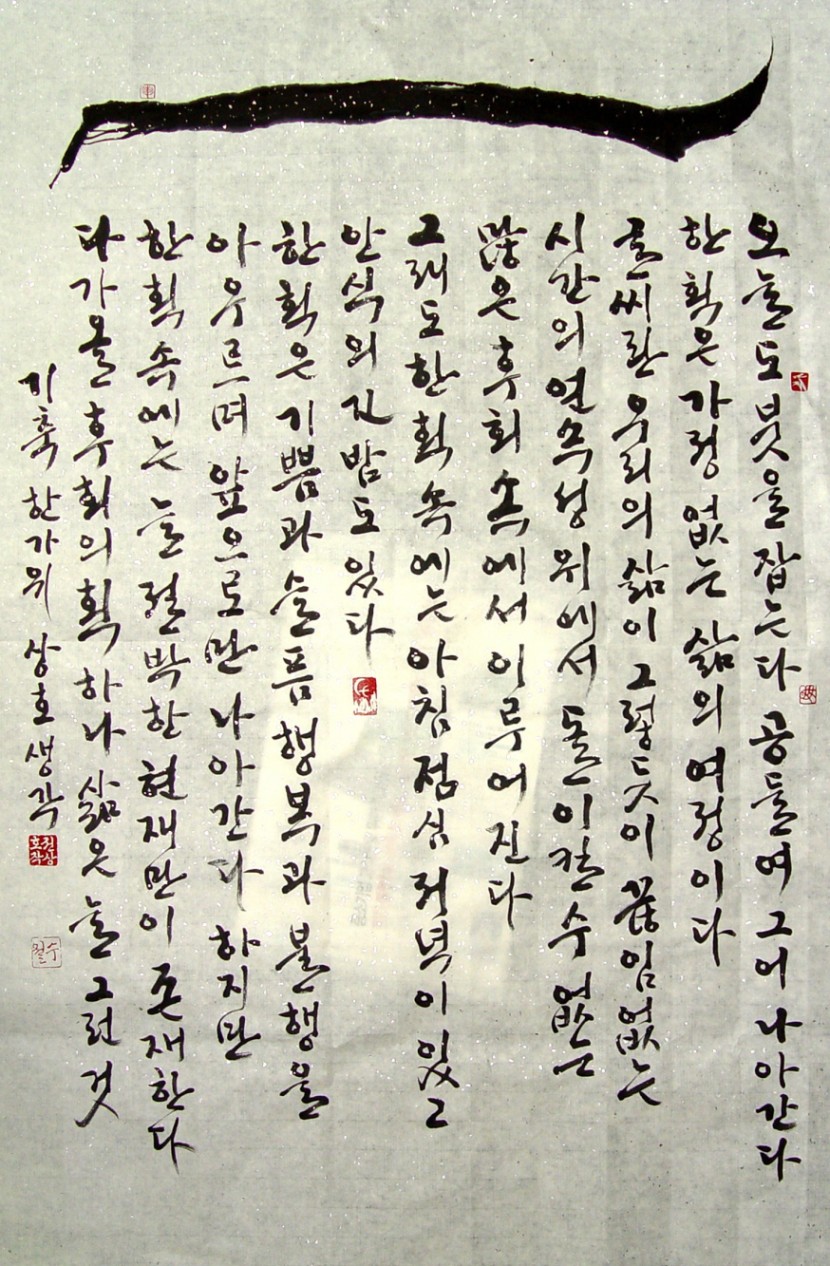 오늘도 붓을 잡는다 공들여 그어 나아간다
한 획은 가정 없는 삶의 여정이다
글씨란 우리의 삶이 그렇듯이 끊임없는
시간의 연속성 위에서 돌이킬 수 없는
많은 후회 속에서 이루어진다
그래도 한 획 속에는 아침 점심 저녁이 있고
안식의 긴 밤도 있다
한 획은 기쁨과 슬픔 행복과 불행을
아우르며 앞으로만 나아간다 하지만
한 획 속에는 늘 절박한 현재만이 존재한다
다가올 후회의 획 하나 삶은 늘 그런 것
기축 한가위 상호 생각
권상
호작